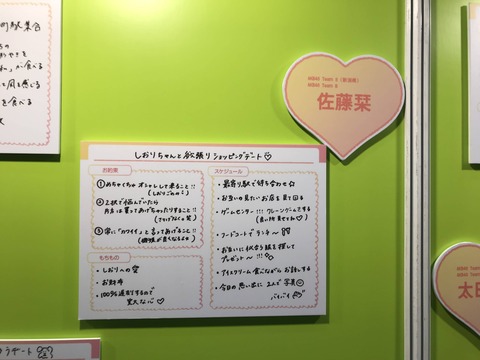 町駅集合
が食べる
と同を感じる
を食べる
AKB48 Team 8（新潟県）
AKB48 Team K
佐藤栞
しおりちゃんと欲張りショッピングデート♡
お約束
①めちゃくちゃオシャレして来ること!!
(しおりごのみ)
②2択で悩んでいたら
片方は買ってあげちゃったりすること!!
③常に「カワイイ」と言ってあげること!!
(機嫌が良くなるよ)
もちもの
・しおりへの愛
・お財布
・100%遅刻するので
寛大な心♡
スケジュール
・最寄り駅で待ち合わせ☆
・お互いの見たいお店を見て回る
・ゲームセンター!!! クレーンゲームをする
(良い所見せてね♡)
・フードコートでランチ〜
・お互いに似合う服を探して
プレゼント〜!!!
・アイスクリーム食べながらお話しする
・今日の思い出に2人で写真
バイバイ
AKB48 Team
AKB48 Team
太田
デート